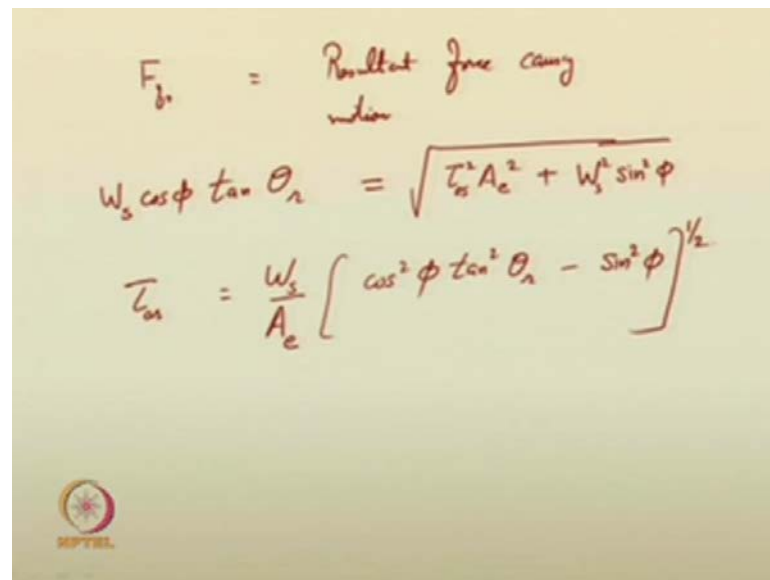 F_fr = Resultant force causg
motion
W_s cosφ tan θ_r = √(τ_as² A_e² + W_s² sin² φ)
τ_as = W_s/A_e [cos² φ tan² θ_r − sin² φ]^1/2
NPTEL